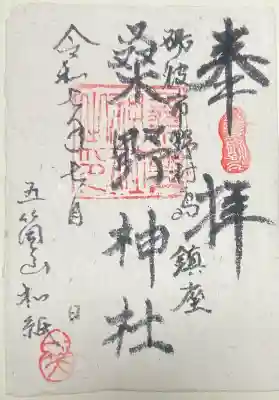 奉拝
砺波市野村島鎮座
桑野神社
令和七年七月
日
五箇山和紙